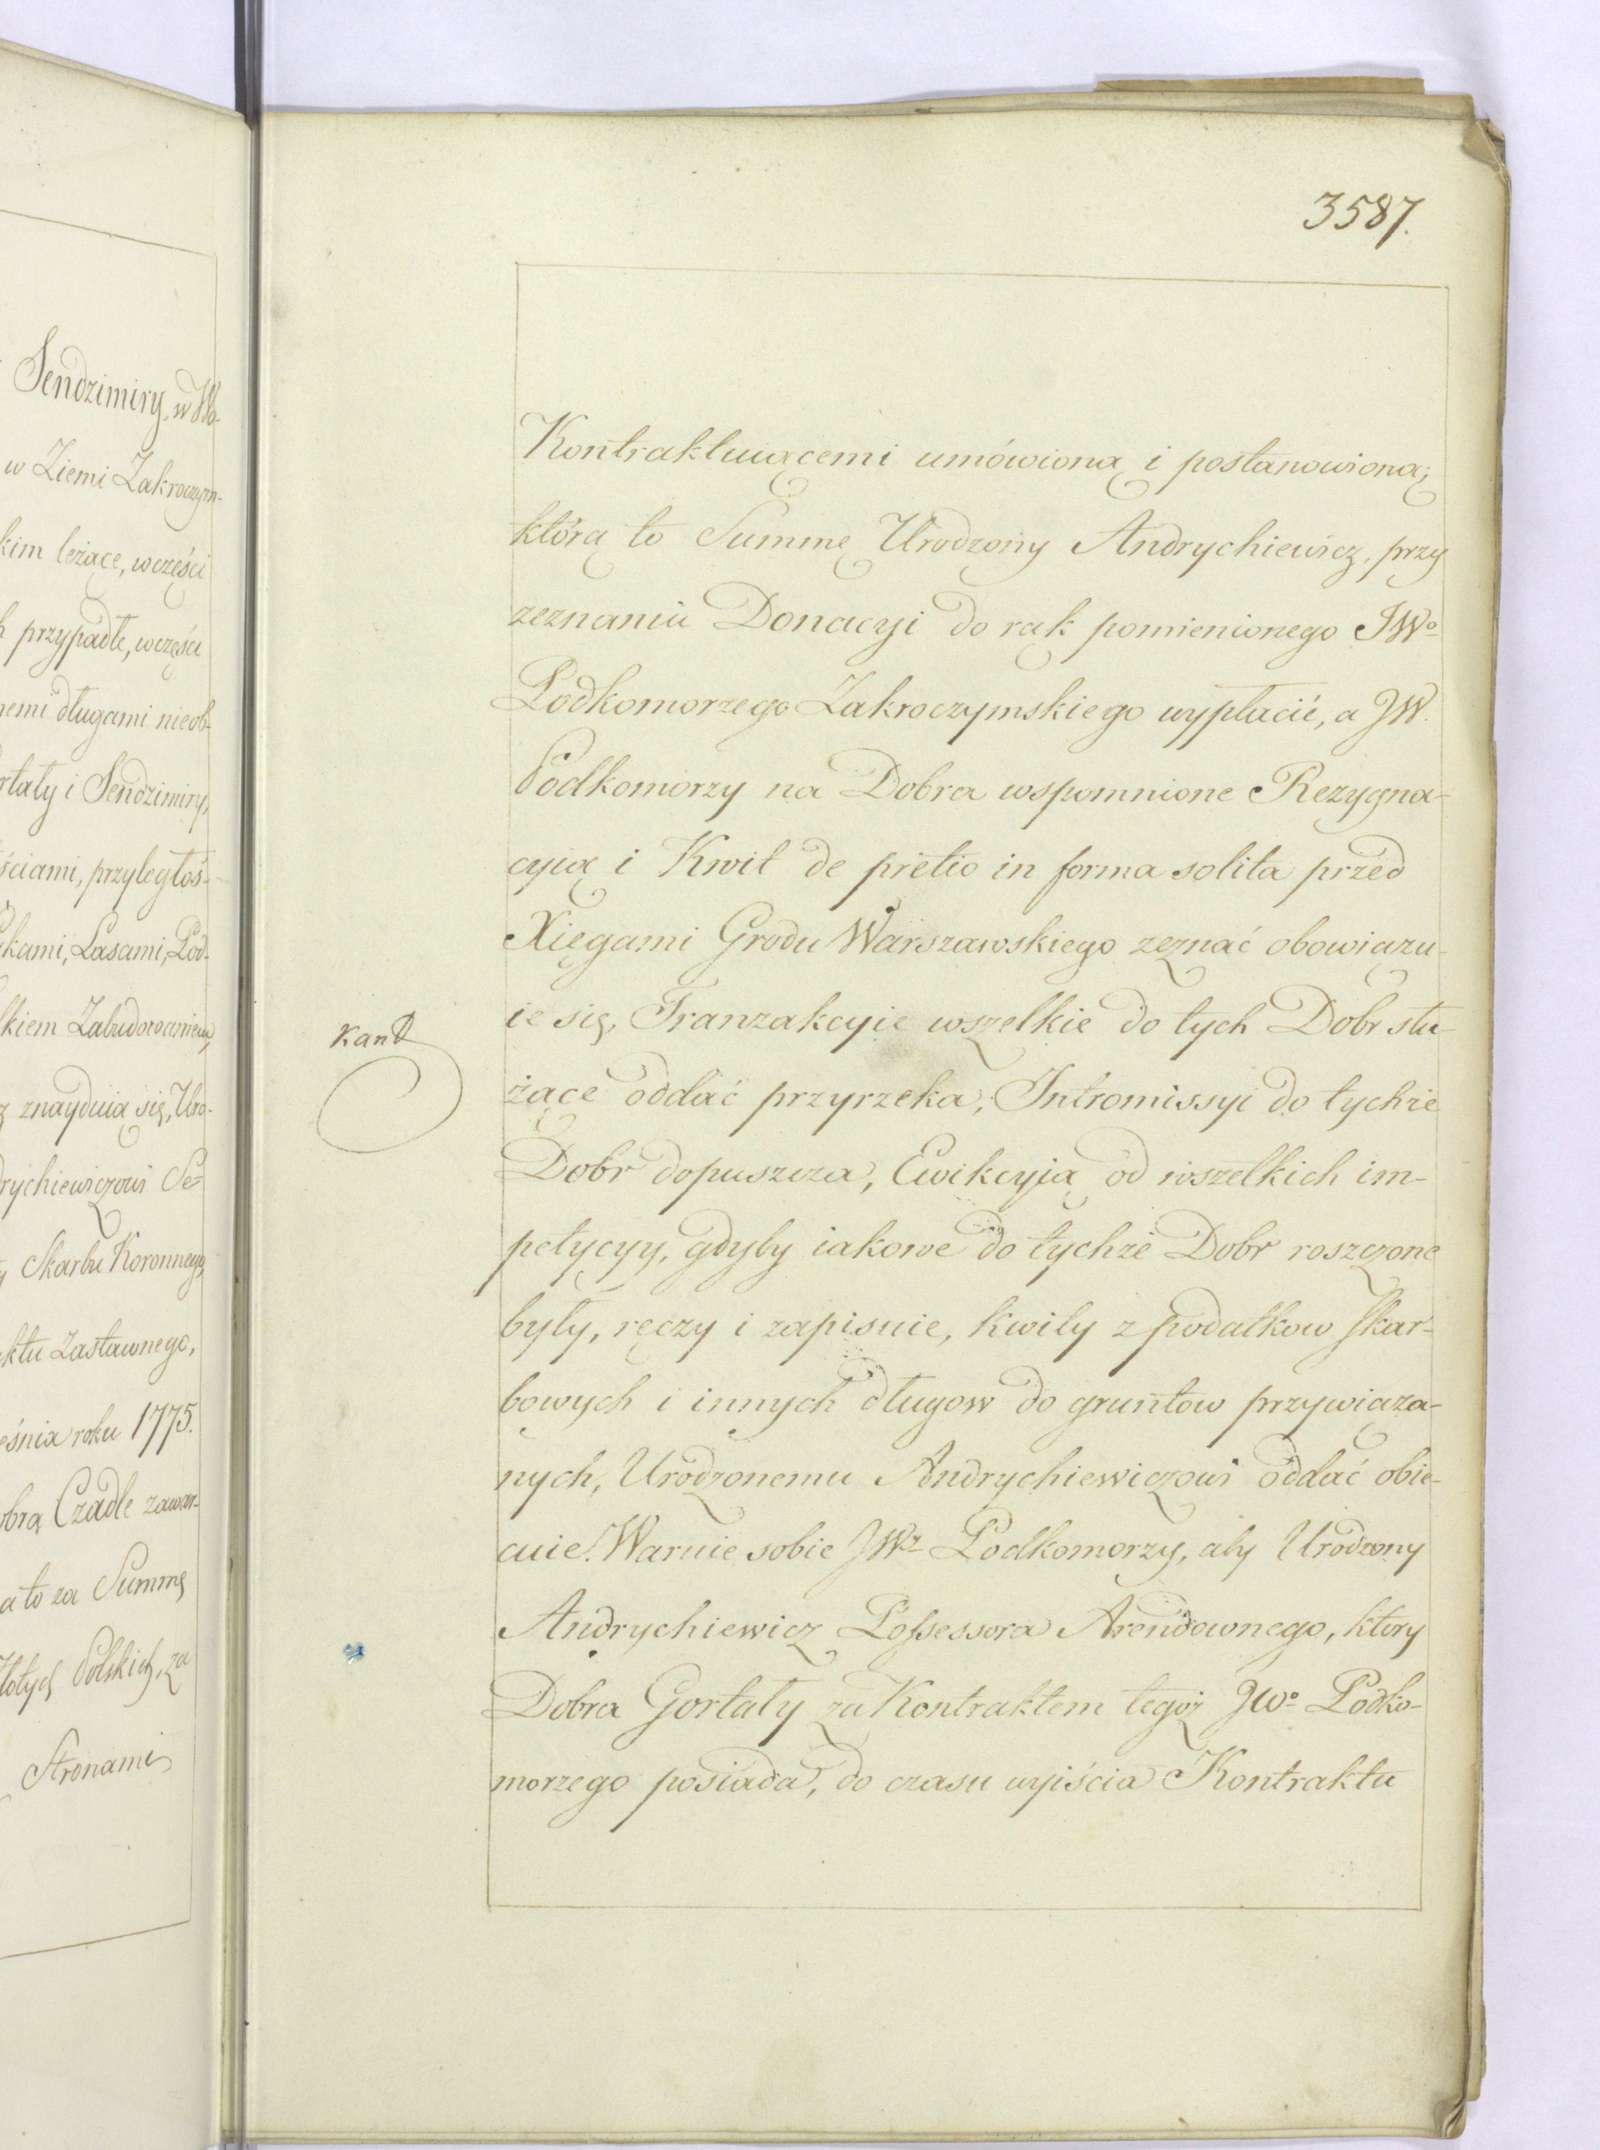 Sendzimiry, w Wo-
w Ziemi Zakroczym-
kim leżące, w części
przypadłe, w części
nemi długami nieob-
rtaty i Sendzimiry,
ściami, przyległoś-
kami, Lasami, Pod-
kiem Zabudowaniem,
znayduią się, Uro-
drychiewiczowi Se-
Skarbu Koronnego,
ktu zastawnego,
eśnia roku 1775.
obra Czadle zawar-
a to za Summę
łotych Polskich, za
Stronami
3587.
Kontraktuiącemi umówioną i postanowioną;
którą to Summę Urodzony Andrychiewicz, przy
zeznaniu Donacyi do rąk pomienionego JWo
Podkomorzego Zakroczymskiego wypłacić, a JW.
Podkomorzy na Dobra wspomnione Rezygna-
cyią i Kwit de pretio in forma solita przed
Xięgami Grodu Warszawskiego zeznać obowiązu-
ie się, Tranzakcyie wszelkie do tych Dobr słu-
żące oddać przyrzeka, Intromissyi do tychże
Dobr dopuszcza, Ewikcyią od wszelkich im-
petycyy, gdyby iakowe do tychże Dobr roszczone
były, ręczy i zapisuie, kwity z podatkow skar-
bowych i innych długow do gruntow przywiąza-
nych, Urodzonemu Andrychiewiczowi oddać obie-
cuie. Waruie sobie JWz Podkomorzy, aby Urodzony
Andrychiewicz Possessora Arendownego, ktory
Dobra Gortaty za Kontraktem tegoż JWo Podko-
morzego posiada, do czasu wyiścia Kontraktu